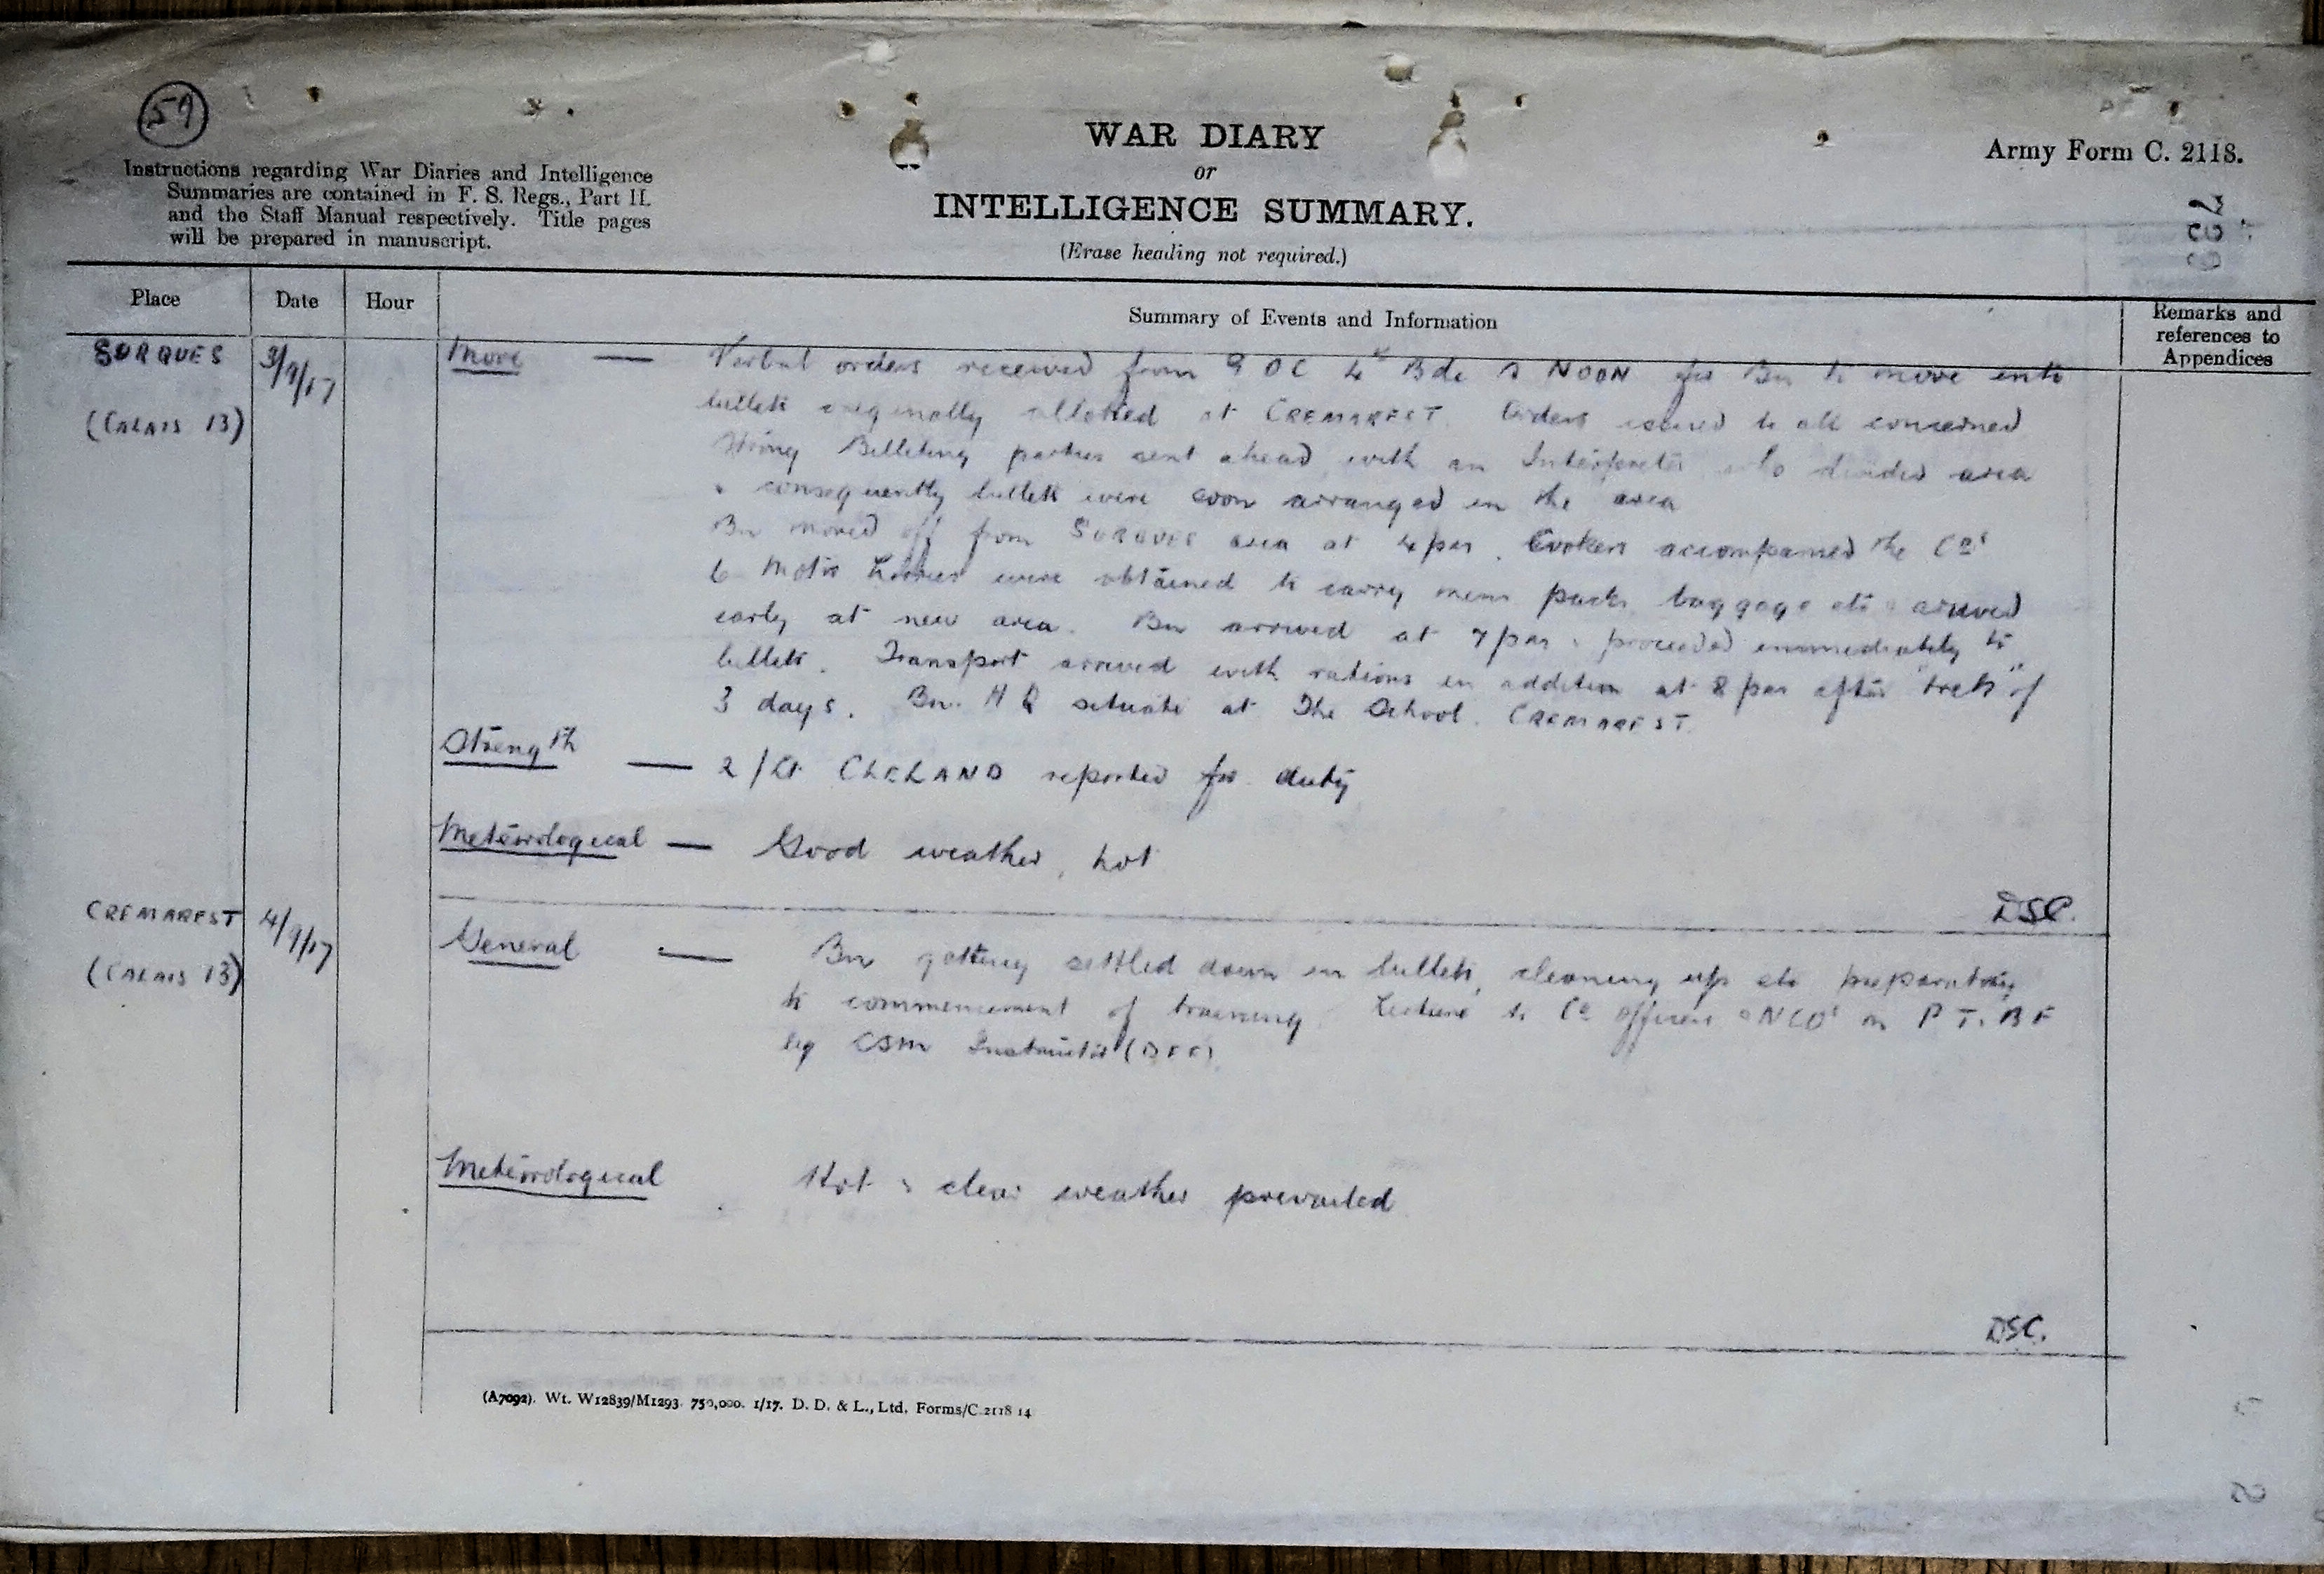 59
WAR DIARY
or
INTELLIGENCE SUMMARY.
(Erase heading not required.)
Army Form C. 2118.
Instructions regarding War Diaries and Intelligence
Summaries are contained in F. S. Regs., Part II.
and the Staff Manual respectively. Title pages
will be prepared in manuscript.
Place Date Hour Summary of Events and Information Remarks and
references to
Appendices
SURQUES 3/9/17 Move — Verbal orders received from G OC 4th Bde NOON for Bn to move into
(CALAIS 13) billets originally allotted at CREMAREST. Orders issued to all concerned
Strong Billeting parties sent ahead with an Interpreter who divided area
& consequently billets were soon arranged in the area
Bn moved off from SURQUES area at 4 pm. Cookers accompanied the Cos
6 Motor Lorries were obtained to carry mens packs baggage etc & arrived
early at new area. Bn arrived at 7 pm & proceeded immediately to
billets. Transport arrived with rations in addition at 8 pm after "trek" of
3 days. Bn. H Q situate at The School. CREMAREST.
Strength — 2/Lt CLELAND reported for duty
Meteorological — Good weather, hot
DSC.
CREMAREST 4/9/17 General — Bn getting settled down in billets, cleaning up etc preparatory
(CALAIS 13) to commencement of training. Lecture to Co officers & NCOs on P T. & B F
by CSM Instructor
Meteorological Hot & clear weather prevailed
DSC.
(A7092). Wt. W12839/M1293. 750,000. 1/17. D. D. & L., Ltd. Forms/C.2118 14